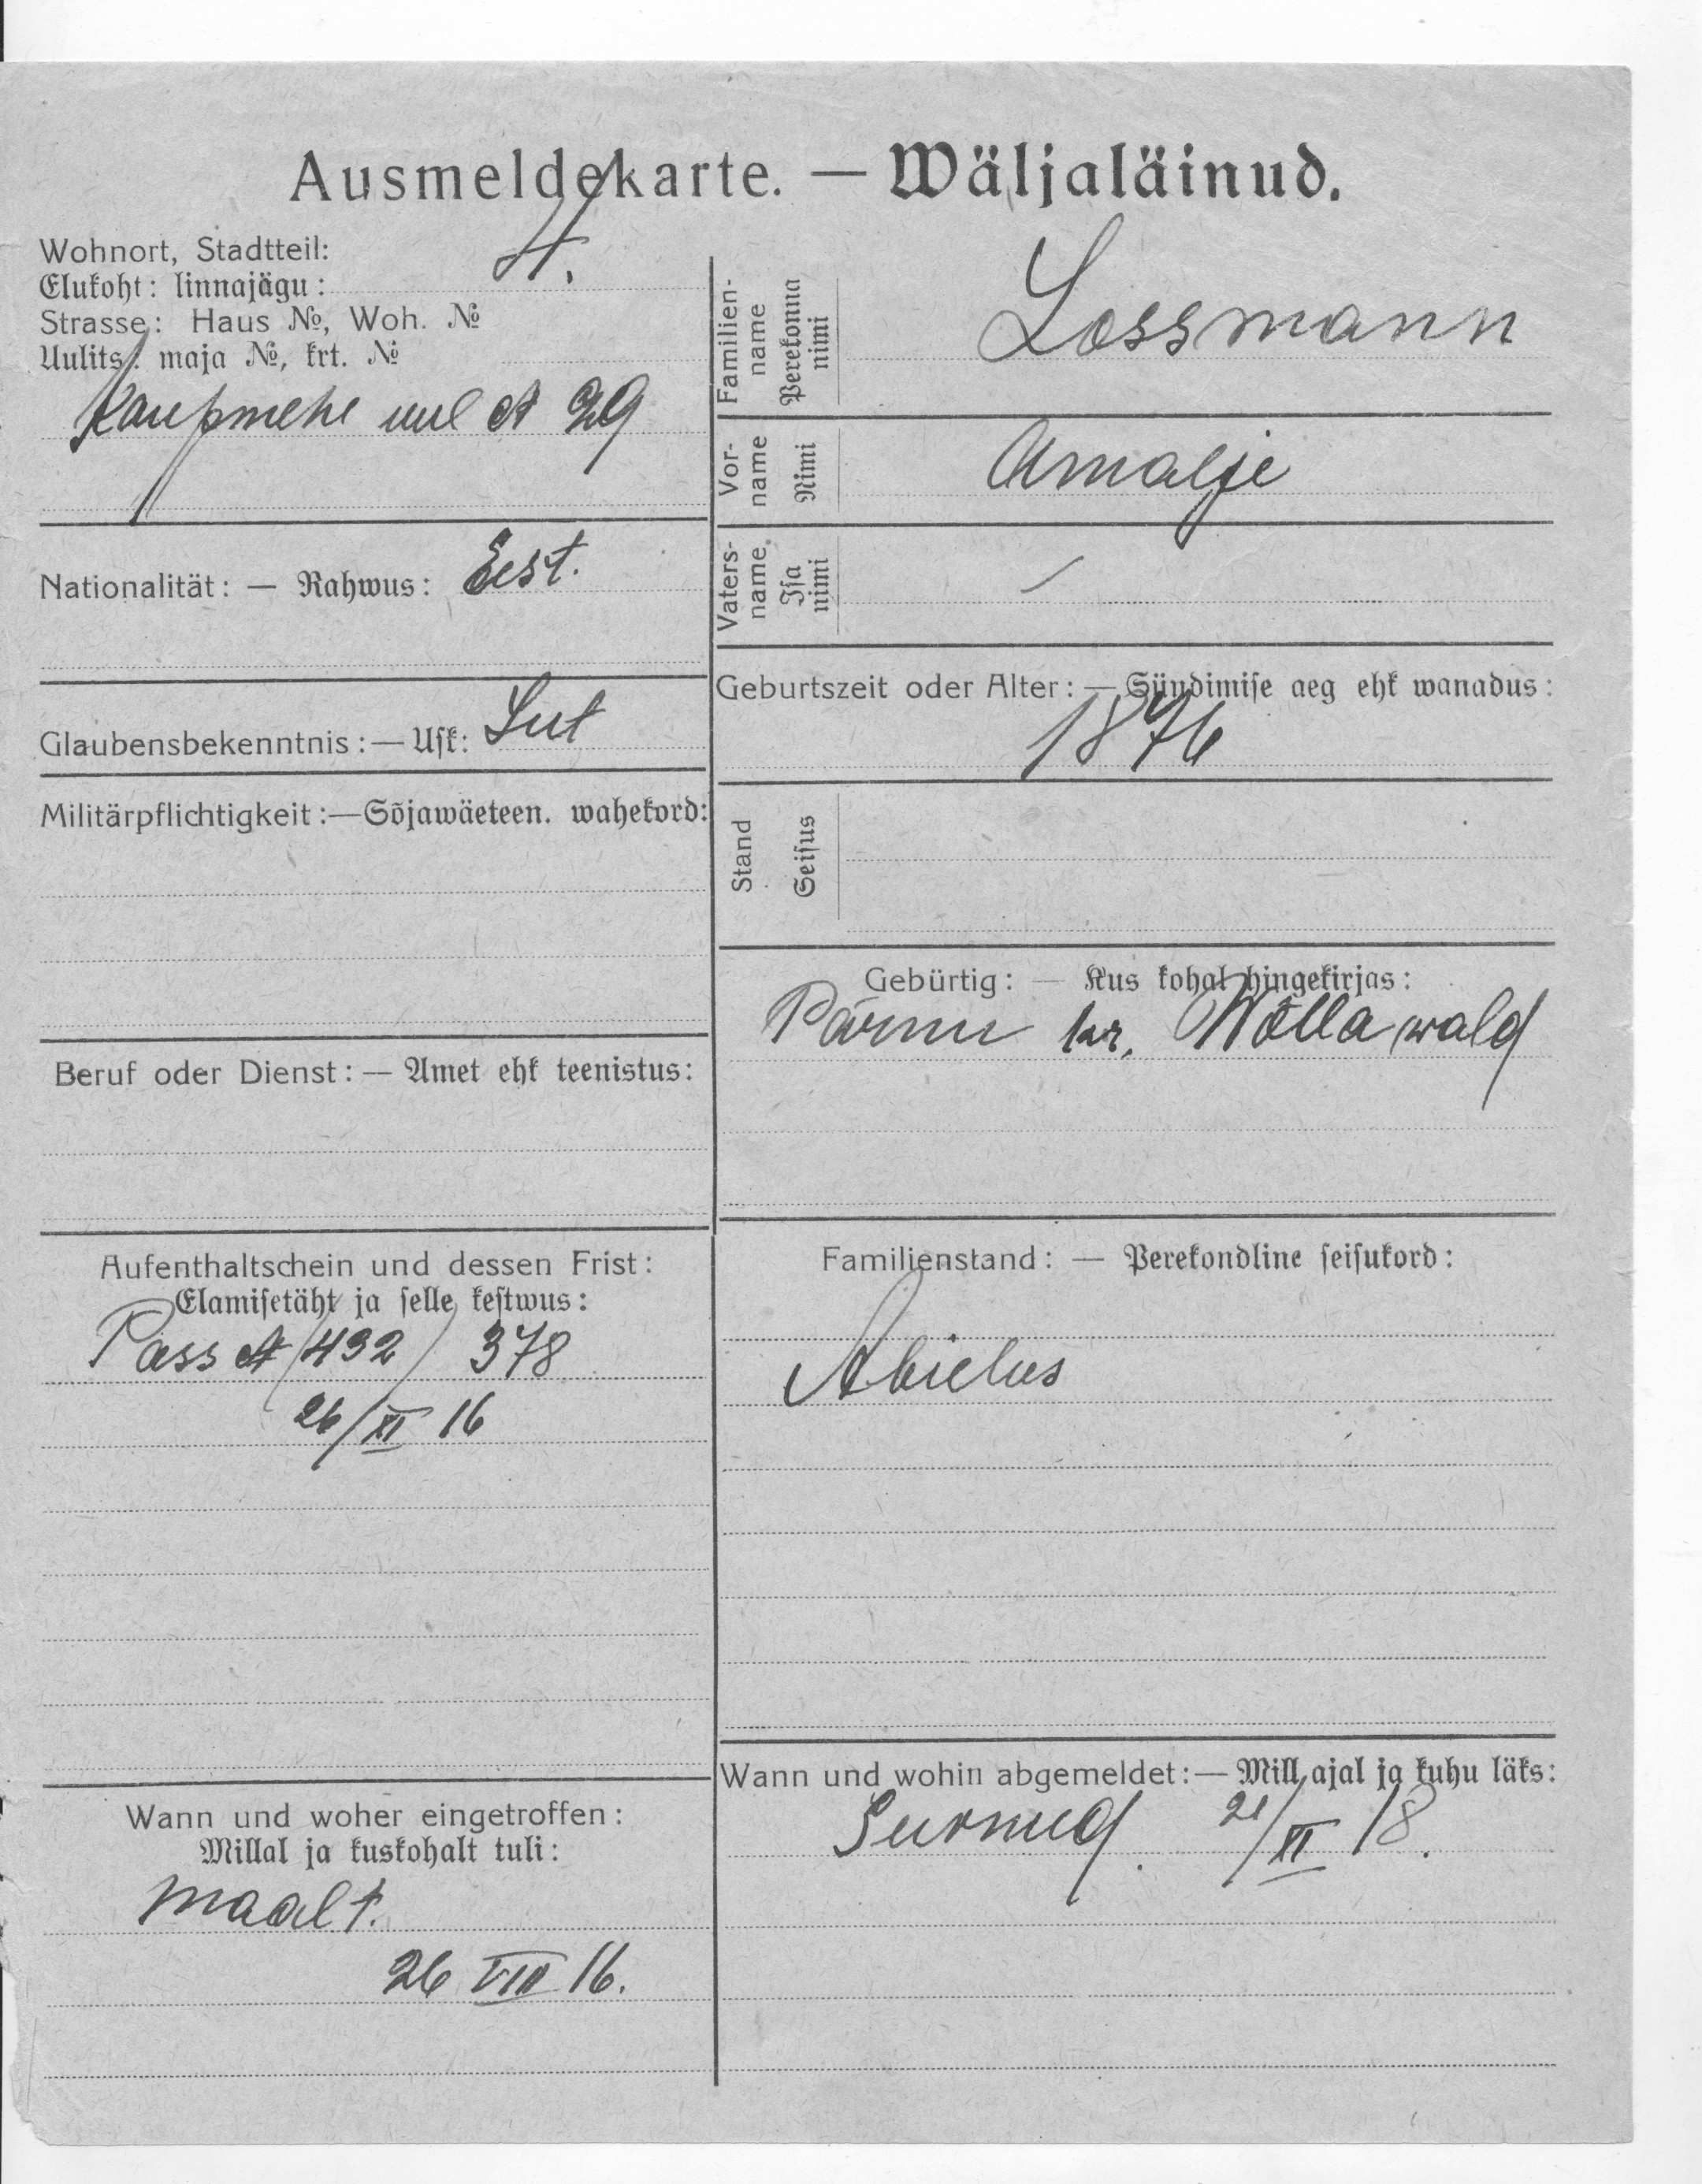 Ausmeldekarte. — Wäljaläinud.
Wohnort, Stadtteil:
Elukoht: linnajägu: 4.
Strasse: Haus №, Woh. №
Uulits: maja №, krt. №
Kaupmehe uul № 29
Nationalität: — Rahwus: Eest.
Glaubensbekenntnis: — Usk: Lut
Militärpflichtigkeit: — Sõjawäeteen. wahekord:
Beruf oder Dienst: — Amet ehk teenistus:
Aufenthaltschein und dessen Frist:
Elamisetäht ja selle kestwus:
Pass № 432 / 378
26/XI 16
Wann und woher eingetroffen:
Millal ja kuskohalt tuli:
maalt.
26 VIII 16.
Familien-
name
Perekonna
nimi
Lossmann
Vor-
name
Nimi
Amalje
Vaters-
name
Isa
nimi
—
Geburtszeit oder Alter: — Sündimise aeg ehk wanadus:
1876
Stand
Seisus
Gebürtig: — Kus kohal hingekirjas:
Pärnu kr. Wõlla wald
Familienstand: — Perekondline seisukord:
Abielus
Wann und wohin abgemeldet: — Mill ajal ja kuhu läks:
Surnud. 21/XI 18.